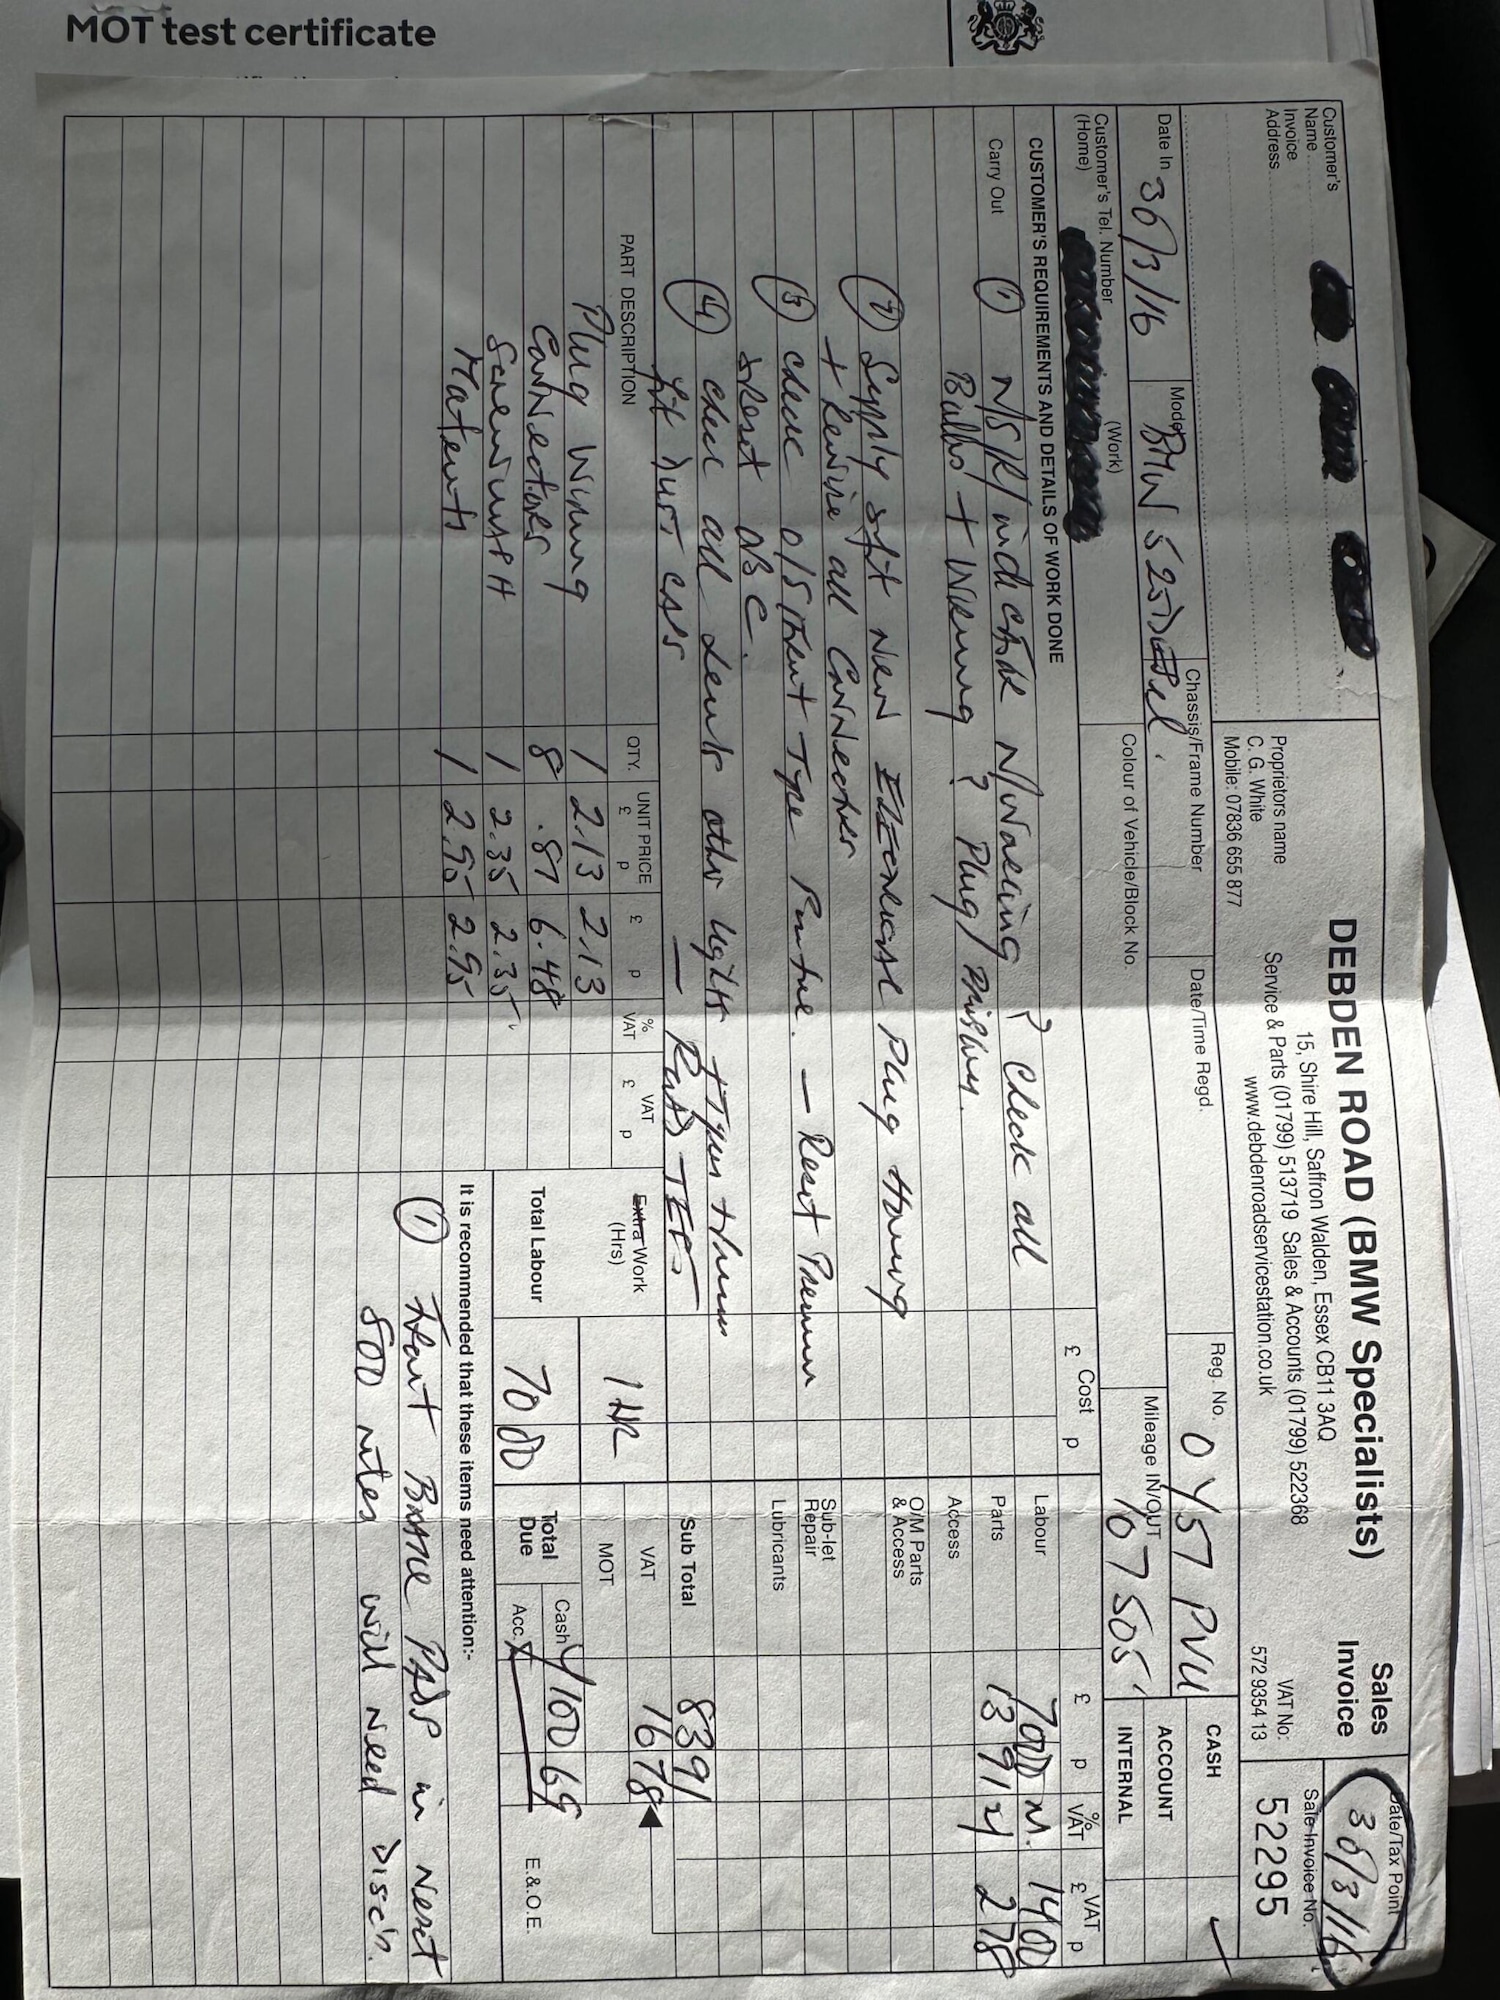 MOT test certificate
DEBDEN ROAD (BMW Specialists)
15, Shire Hill, Saffron Walden, Essex CB11 3AQ
Service & Parts (01799) 513719 Sales & Accounts (01799) 522368
www.debdenroadservicestation.co.uk
Proprietors name
C. G. White
Mobile: 07836 655 877
Sales
Invoice
VAT No:
572 9354 13
Date/Tax Point
30/3/16
Sale Invoice No.
52295
Customer's
Name
Invoice
Address
Date In 30/3/16
Model BMW 525 Diesel.
Chassis/Frame Number
Date/Time Regd.
Reg. No. OY57 PVU
CASH ✓
ACCOUNT
INTERNAL
Customer's Tel. Number
(Home)
(Work)
Colour of Vehicle/Block No.
Mileage IN/OUT
107505
CUSTOMER'S REQUIREMENTS AND DETAILS OF WORK DONE
Cost
£ p
Carry Out
① N/S/R/ indicator N/Working ? Check all
Bulbs + Wiring ? Plug/ missing.
② Supply + fit New Electrical Plug Housing
+ Rewire all Connectors
③ check o/s/front Type Puncture. — Reset
Reset OBC.
④ check all lights other lights
fit dust caps — Road TEST
£ p % VAT £ VAT p
Labour 70 00 14 00
Parts 13 91 2 78
Access
O/M Parts
& Access
Sub-let
Repair
Lubricants
Sub Total 83 91
VAT 16 78
MOT
Total
Due
Cash 100 69
Acc.
E.&.O.E.
PART DESCRIPTION QTY. UNIT PRICE £ p £ p % VAT £ VAT p
Plug Wiring 1 2.13 2.13
Connectors 8 .87 6.48
Screenwash 1 2.35 2.35
Materials 1 2.95 2.95
Extra Work
(Hrs)
1 HR
Total Labour 70 00
It is recommended that these items need attention:-
① Front Brake PADS in Next
800 miles will Need Disc's.